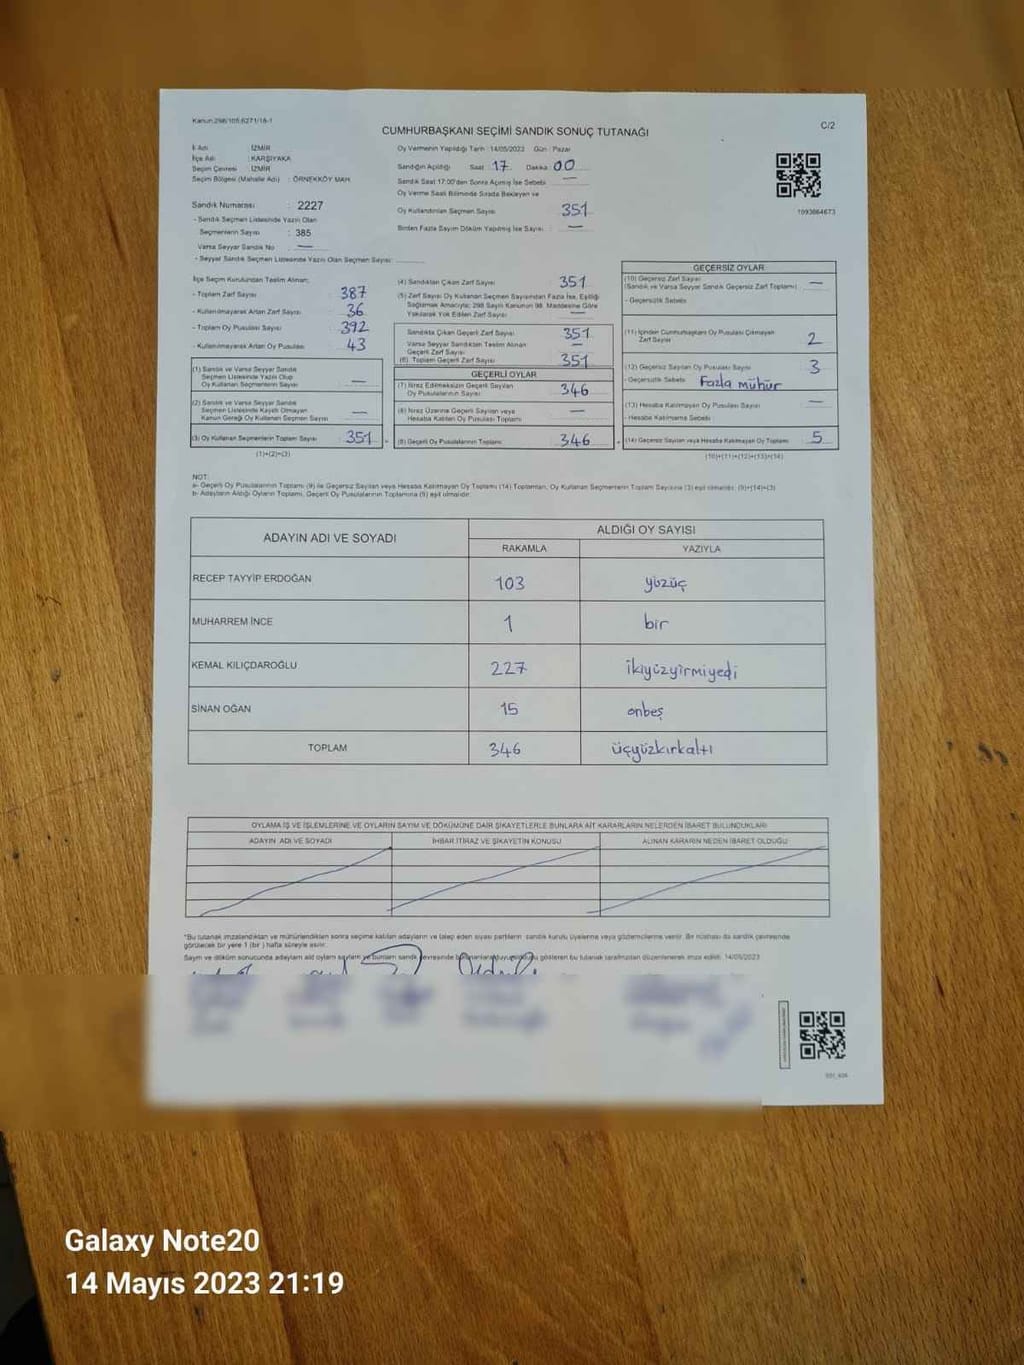 Kanun:298/105;6271/18-1
C/2
CUMHURBAŞKANI SEÇİMİ SANDIK SONUÇ TUTANAĞI
İl Adı : İZMİR
İlçe Adı : KARŞIYAKA
Seçim Çevresi : İZMİR
Seçim Bölgesi (Mahalle Adı) : ÖRNEKKÖY MAH.
Sandık Numarası : 2227
- Sandık Seçmen Listesinde Yazılı Olan
Seçmenlerin Sayısı : 385
Varsa Seyyar Sandık No : —
- Seyyar Sandık Seçmen Listesinde Yazılı Olan Seçmen Sayısı:
Oy Vermenin Yapıldığı Tarih : 14/05/2023 Gün : Pazar
Sandığın Açıldığı Saat 17 Dakika 00
Sandık Saat 17:00'den Sonra Açılmış İse Sebebi —
Oy Verme Saati Bitiminde Sırada Bekleyen ve
Oy Kullandırılan Seçmen Sayısı 351
Birden Fazla Sayım Döküm Yapılmış İse Sayısı : —
1093864673
İlçe Seçim Kurulundan Teslim Alınan;
- Toplam Zarf Sayısı 387
- Kullanılmayarak Artan Zarf Sayısı 36
- Toplam Oy Pusulası Sayısı 392
- Kullanılmayarak Artan Oy Pusulası 43
(1) Sandık ve Varsa Seyyar Sandık
Seçmen Listesinde Yazılı Olup
Oy Kullanan Seçmenlerin Sayısı —
(2) Sandık ve Varsa Seyyar Sandık
Seçmen Listesinde Kayıtlı Olmayan
Kanun Gereği Oy Kullanan Seçmen Sayısı —
(3) Oy Kullanan Seçmenlerin Toplam Sayısı 351
(1)+(2)=(3)
(4) Sandıktan Çıkan Zarf Sayısı 351
(5) Zarf Sayısı Oy Kullanan Seçmen Sayısından Fazla İse, Eşitliği
Sağlamak Amacıyla; 298 Sayılı Kanunun 98. Maddesine Göre
Yakılarak Yok Edilen Zarf Sayısı —
Sandıkta Çıkan Geçerli Zarf Sayısı 351
Varsa Seyyar Sandıktan Teslim Alınan
Geçerli Zarf Sayısı —
(6) Toplam Geçerli Zarf Sayısı 351
GEÇERLİ OYLAR
(7) İtiraz Edilmeksizin Geçerli Sayılan
Oy Pusulası Sayısı 346
(8) İtiraz Üzerine Geçerli Sayılan veya
Hesaba Katılan Oy Pusulası Toplamı —
(9) Geçerli Oy Pusulalarının Toplamı 346
GEÇERSİZ OYLAR
(10) Geçersiz Zarf Sayısı
(Sandık ve Varsa Seyyar Sandık Geçersiz Zarf Toplamı) —
- Geçersizlik Sebebi
(11) İçinden Cumhurbaşkanı Oy Pusulası Çıkmayan
Zarf Sayısı 2
(12) Geçersiz Sayılan Oy Pusulası Sayısı 3
- Geçersizlik Sebebi Fazla mühür
(13) Hesaba Katılmayan Oy Pusulası Sayısı —
- Hesaba Katılmama Sebebi
(14) Geçersiz Sayılan veya Hesaba Katılmayan Oy Toplamı 5
(10)+(11)+(12)+(13)=(14)
NOT:
a- Geçerli Oy Pusulalarının Toplamı (9) ile Geçersiz Sayılan veya Hesaba Katılmayan Oy Toplamı (14) Toplamları, Oy Kullanan Seçmenlerin Toplam Sayısına (3) eşit olmalıdır. (9)+(14)=(3)
b- Adayların Aldığı Oyların Toplamı, Geçerli Oy Pusulalarının Toplamına (9) eşit olmalıdır.
ADAYIN ADI VE SOYADI ALDIĞI OY SAYISI
RAKAMLA YAZIYLA
RECEP TAYYİP ERDOĞAN 103 yüzüç
MUHARREM İNCE 1 bir
KEMAL KILIÇDAROĞLU 227 ikiyüzyirmiyedi
SİNAN OĞAN 15 onbeş
TOPLAM 346 üçyüzkırkaltı
OYLAMA İŞ VE İŞLEMLERİNE VE OYLARIN SAYIM VE DÖKÜMÜNE DAİR ŞİKAYETLERLE BUNLARA AİT KARARLARIN NELERDEN İBARET BULUNDUKLARI
ADAYIN ADI VE SOYADI İHBAR İTİRAZ VE ŞİKAYETİN KONUSU ALINAN KARARIN NEDEN İBARET OLDUĞU
*Bu tutanak imzalandıktan ve mühürlendikten sonra seçime katılan adayların ve talep eden siyasi partilerin sandık kurulu üyelerine veya gözlemcilerine verilir. Bir nüshası da sandık çevresinde
görülecek bir yere 1 (bir) hafta süreyle asılır.
Sayım ve döküm sonucunda adayların aldığı oyların sayılarını ve bunların sandık çevresinde
gösteren bu tutanak tarafımızdan düzenlenerek imza edildi. 14/05/2023
Galaxy Note20
14 Mayıs 2023 21:19